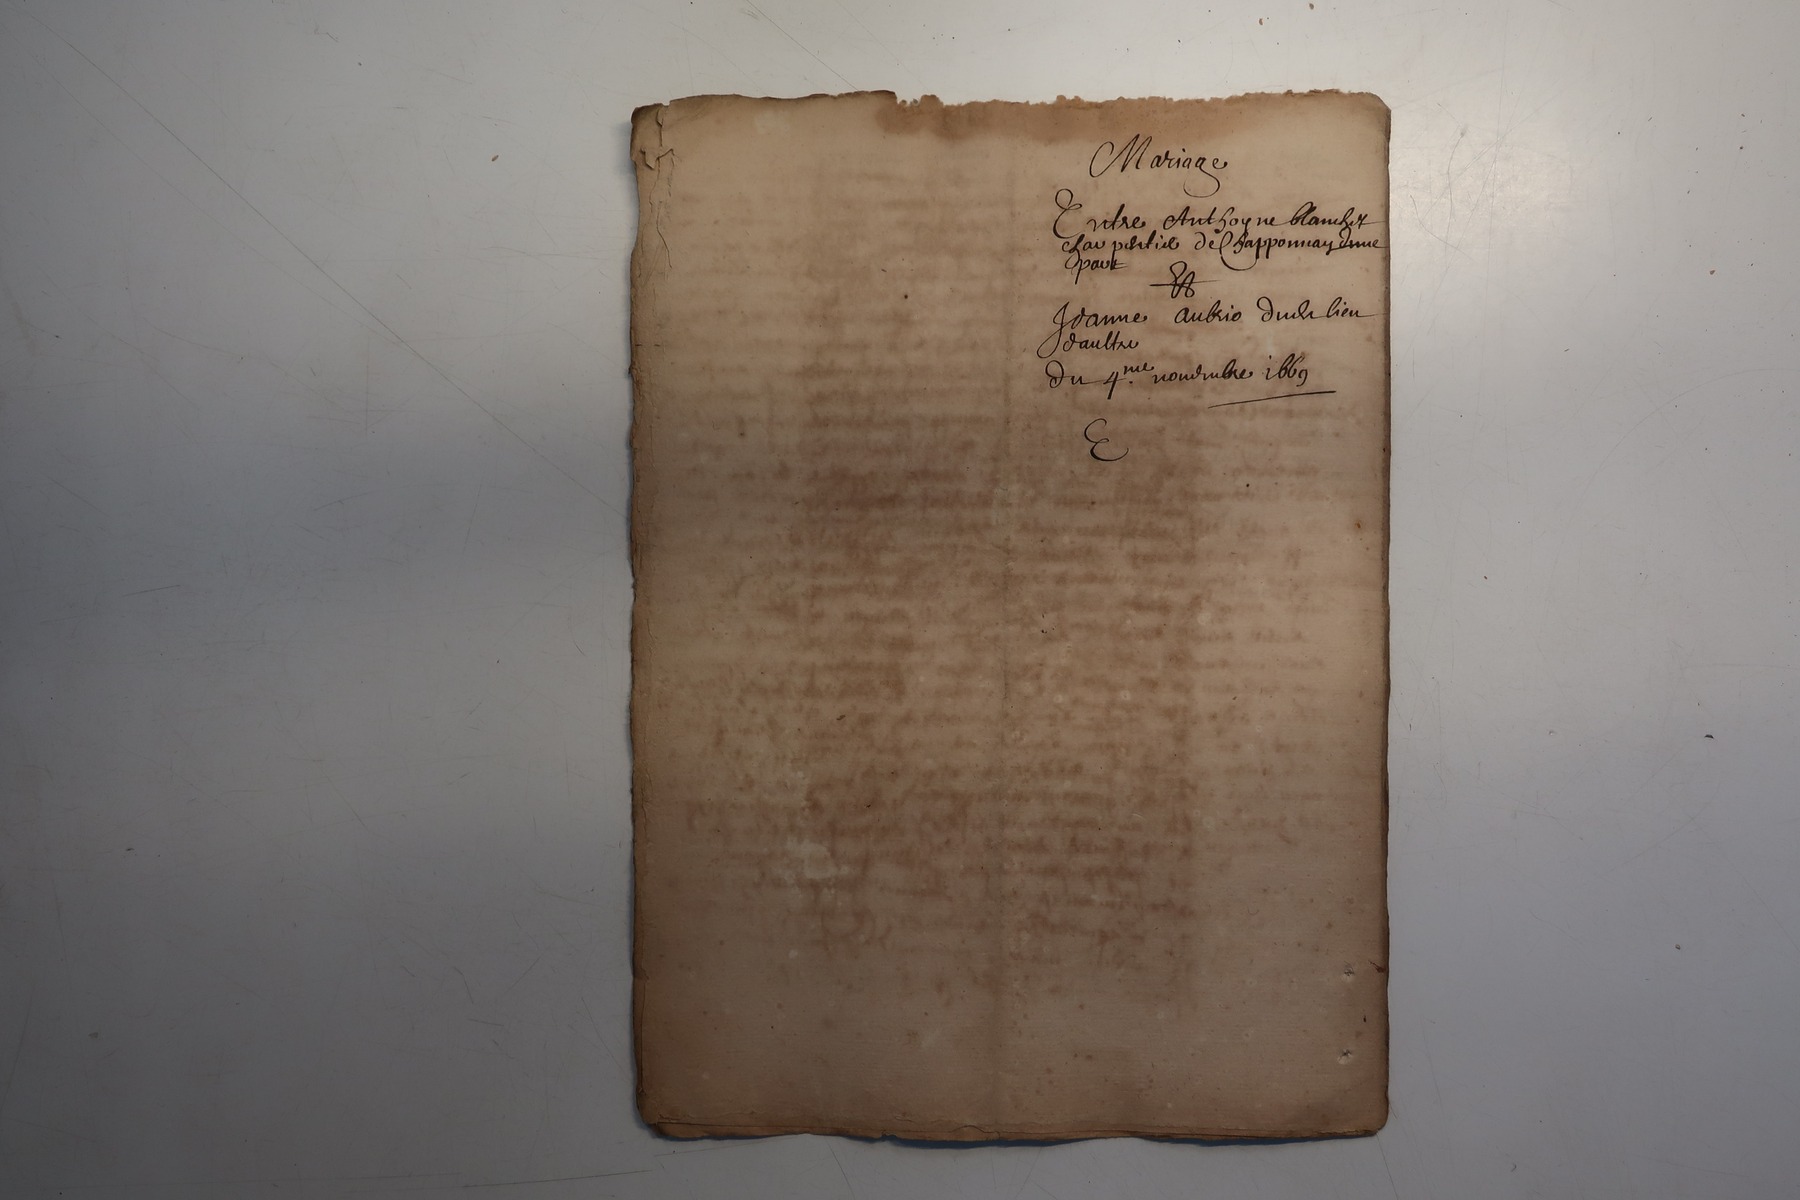 Mariage
Entre Anthoyne blanchet
charpentier de Chapponnay dune
part
Et
Jeanne aubrio dudt lieu
daultre
du 4.me novembre 1669
E